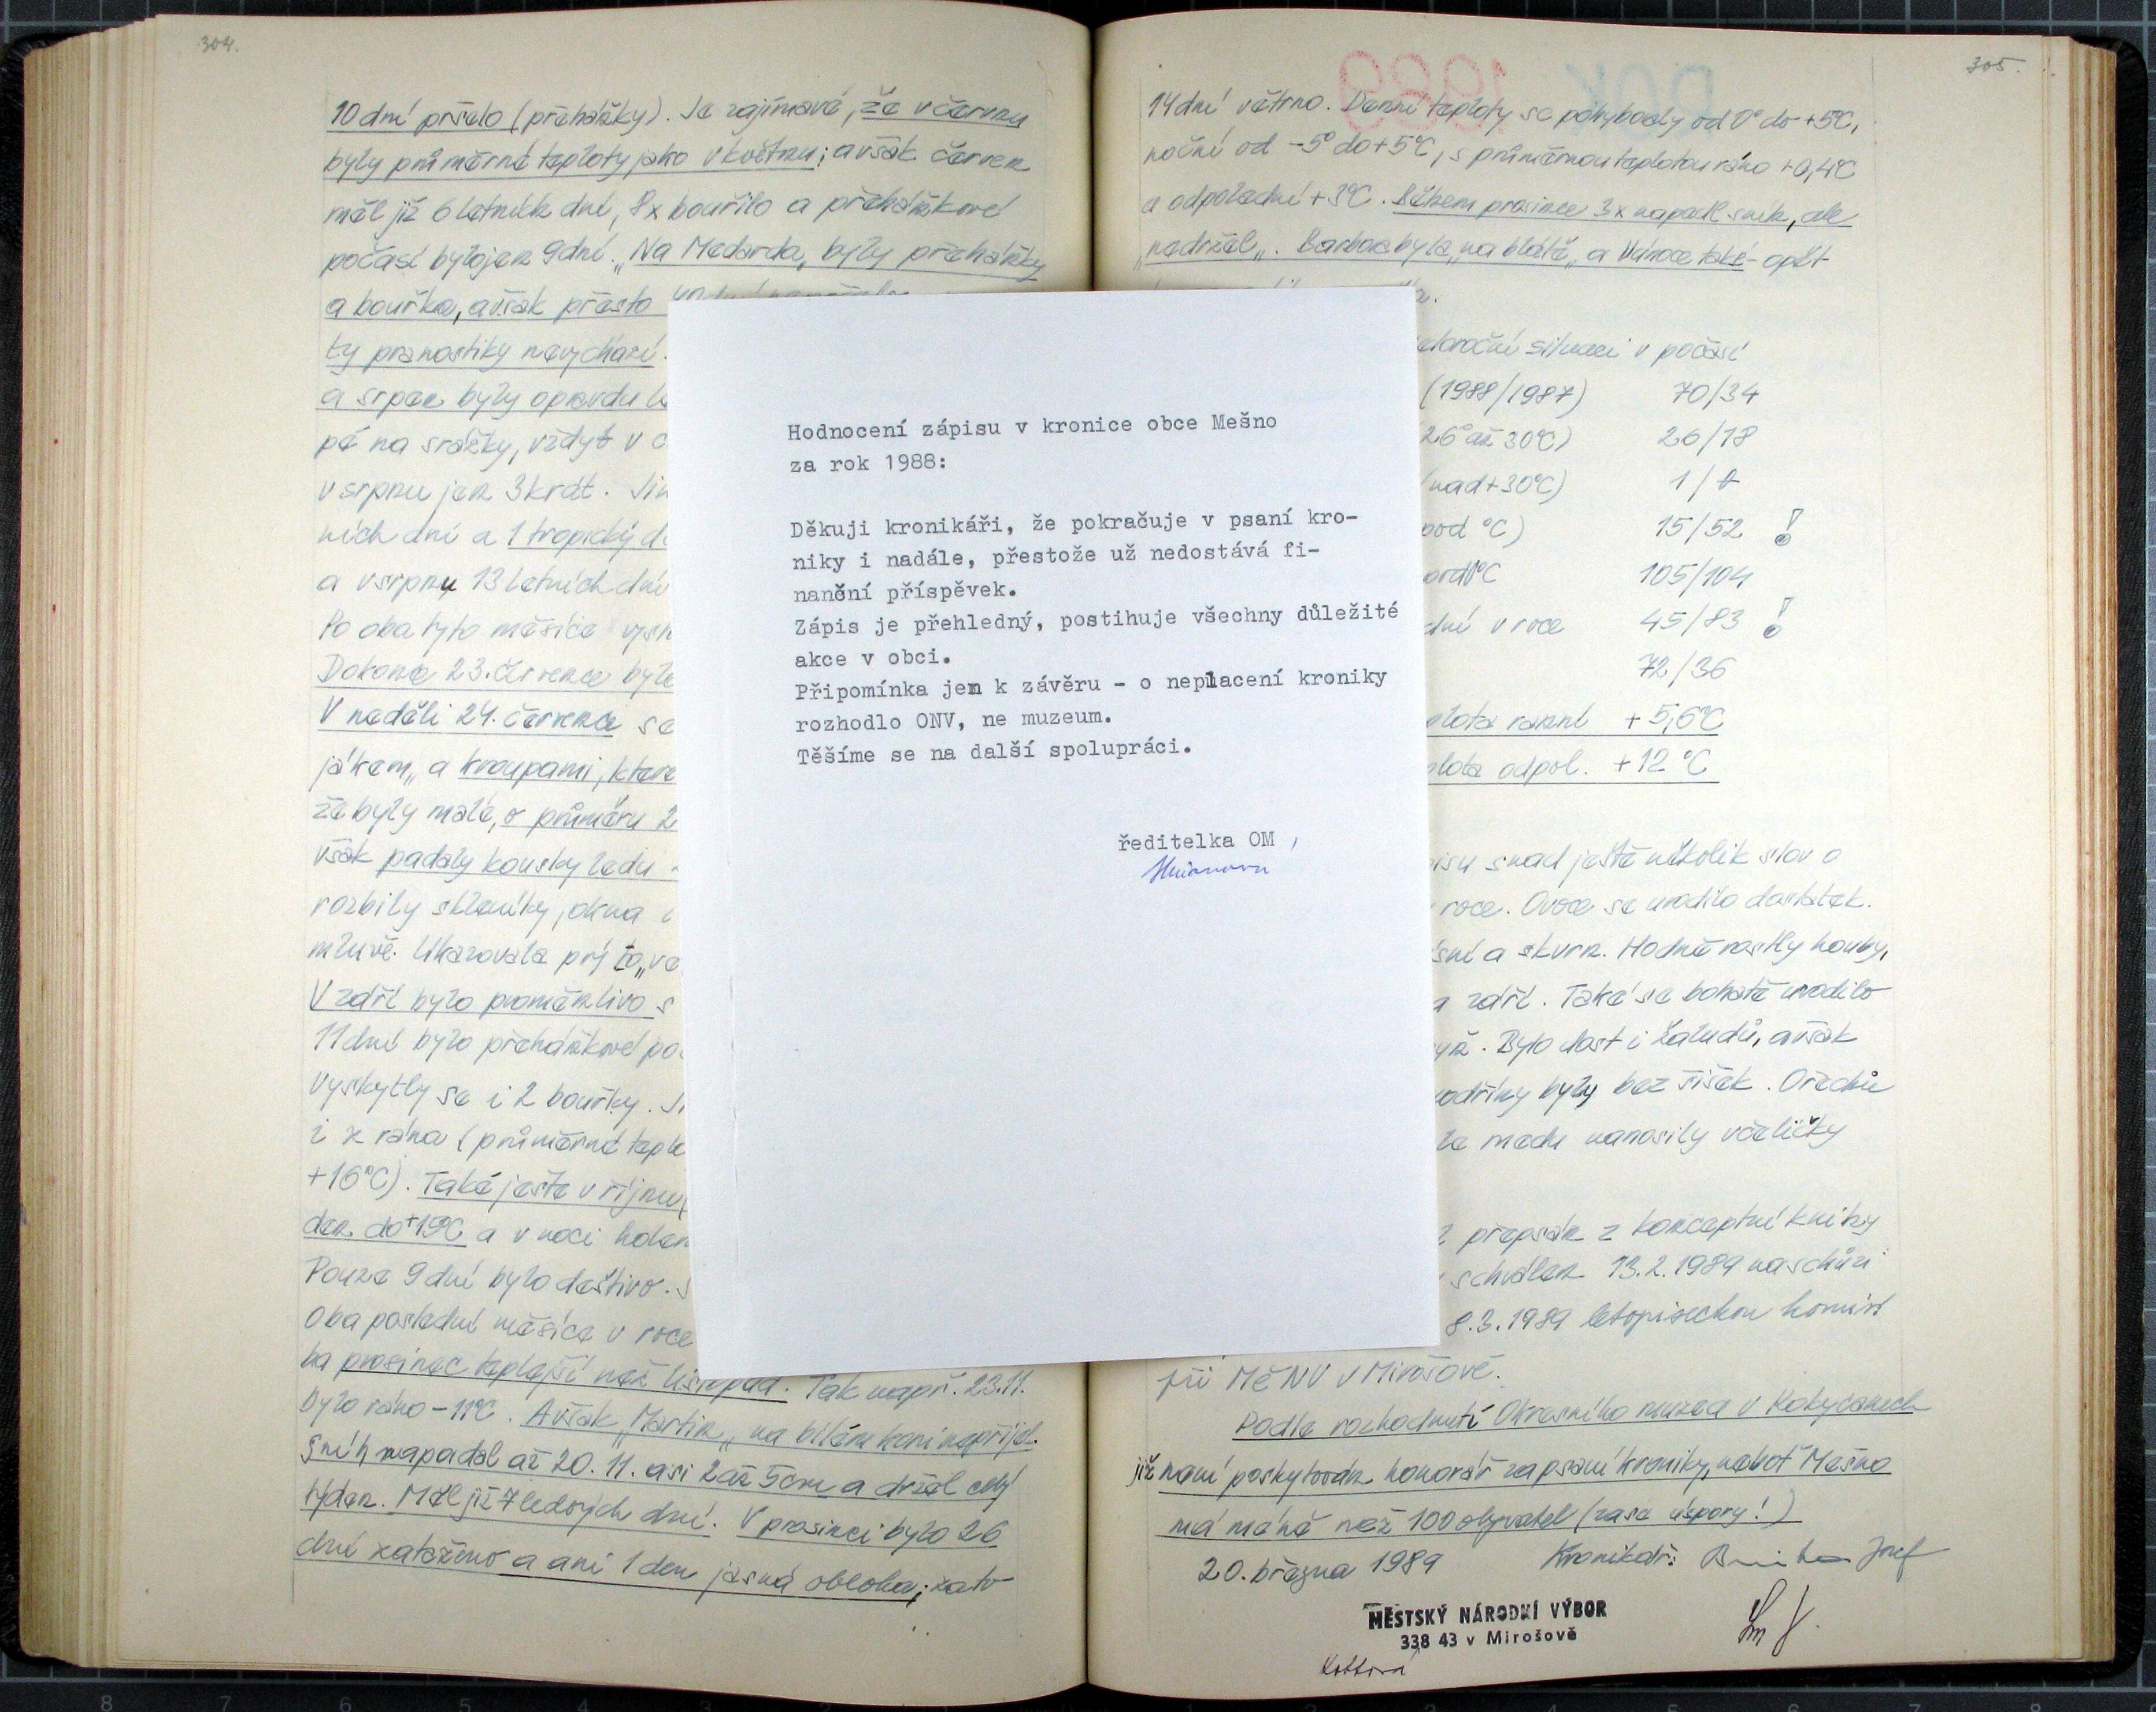 304.
10 dní pršelo (přeháňky). Je zajímavé, že v červnu
byly průměrné teploty jako v květnu; avšak červen
měl již 6 letních dní, 8x bouřilo a přeháňkové
počasí bylo jen 9 dní. „Na Medarda„ byly přeháňky
a bouřka, avšak přesto
ty pranostiky nevychází.
a srpen byly opravdu
pé na srážky, vždyť v
v srpnu jen 3krát.
ních dní a 1 tropický
a v srpnu 13 letních dní
Po oba tyto měsíce
Dokonce 23. července
V neděli 24. července se
jákem„ a kroupami, které
že byly malé, o průměru 2
však padaly kousky ledu -
rozbily skleníky, okna i
mluvě. Ukazovala prý to„
V září bylo proměnlivo s
11 dní bylo přeháňkové
Vyskytly se i 2 bouřky.
i z rána (průměrné
+16°C). Také ještě v říjnu
den. do +19°C a v noci
Pouze 9 dní bylo deštivo.
Oba poslední měsíce v roce
prosinec teplejší než listopad. Tak např. 23.11.
bylo ráno -11°C. Avšak „Martin„ na bílém koni nepřijel.
Sníh napadal až 20. 11. asi 2 až 5cm a držel celý
týden. Měl již 7 ledových dní. V prosinci bylo 26
dní zataženo a ani 1 den jasná obloha; zato
Hodnocení zápisu v kronice obce Mešno
za rok 1988:
Děkuji kronikáři, že pokračuje v psaní kro-
niky i nadále, přestože už nedostává fi-
nanční příspěvek.
Zápis je přehledný, postihuje všechny důležité
akce v obci.
Připomínka jen k závěru - o neplacení kroniky
rozhodlo ONV, ne muzeum.
Těšíme se na další spolupráci.
ředitelka OM
305.
14 dní větrno. Denní teploty se pohybovaly od 0° do +5°C,
noční od -5° do +5°C, s průměrnou teplotou ráno +0,4°C
a odpolední +3°C. Během prosince 3x napadl sníh, ale
„nedržel„. Barbora byla „na blátě„ a Vánoce také - opět
situaci v počasí
(1988/1987) 70/34
26° až 30°C) 26/18
(nad +30°C) 1/
pod °C) 15/52 !
°C 105/104
dní v roce 45/83 !
72/36
ranní +5,6°C
odpol. +12 °C
snad ještě několik slov o
roce. Ovoce se urodilo dostatek.
a skvrn. Hodně rostly houby,
září. Také se bohatě urodilo
Bylo dost i žaludů, avšak
byly bez šišek. Ořechů
medu nanosily včeličky
přepsán z konceptní knihy
schválen 13. 2. 1989 na schůzi
8. 3. 1989 letopiseckou komisí
při MěNV v Mirošově.
Podle rozhodnutí Okresního muzea v Rokycanech
již není poskytován honorář za psaní kroniky, neboť Mešno
má méně než 100 obyvatel (zase úspory!)
20. března 1989 Kronikář: Josef
MĚSTSKÝ NÁRODNÍ VÝBOR
338 43 v Mirošově